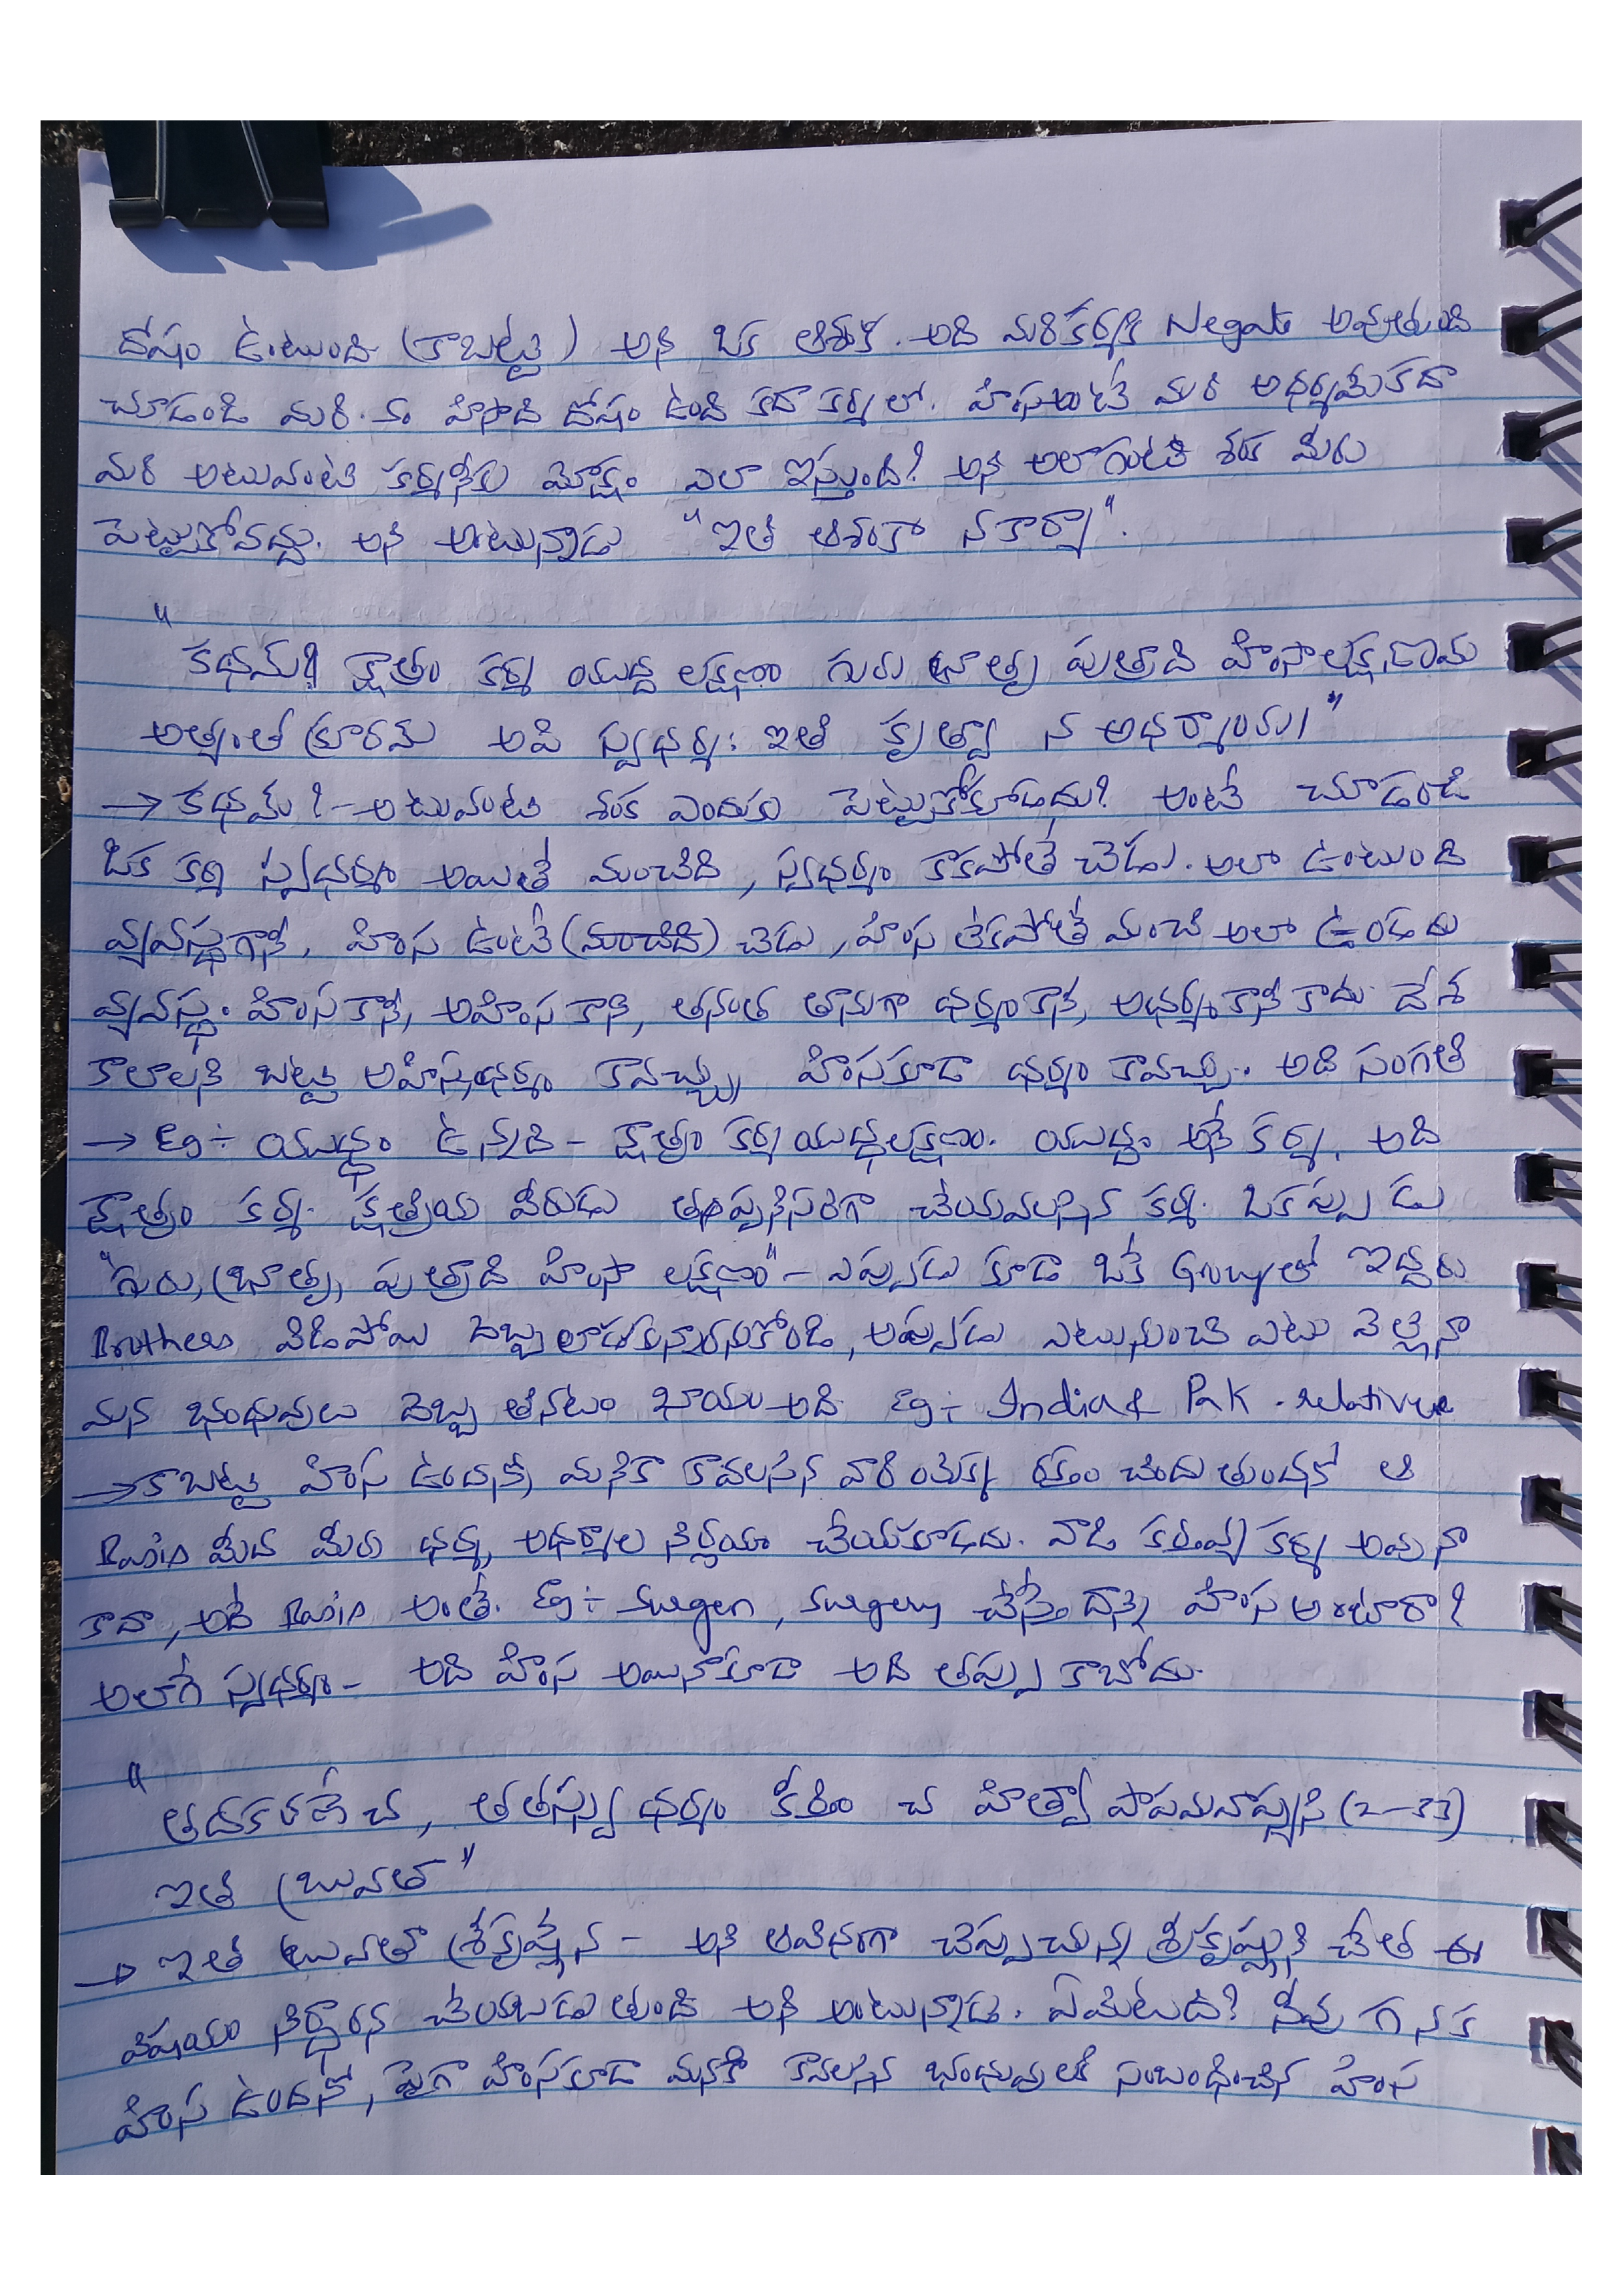 దోషం ఉంటుంది (కాబట్టి) అని ఒక ఆశంక. అది మరి కర్మకి Negate అవుతుంది
చూడండి మరి. హింసాది దోషం ఉంది కదా కర్మలో. హింస అంటే మరి అధర్మమేకదా
మరి అటువంటి కర్మనీకు మోక్షం ఎలా ఇస్తుంది? అని అలాగంటి శంక మీరు
పెట్టుకోవద్దు. అని అంటున్నాడు "ఇతి ఆశంకా నకార్యా".
"
కథమ్? క్షాత్రం కర్మ యుద్ధ లక్షణం గురు భ్రాతృ పుత్రాది హింసాలక్షణమ
అత్యంత క్రూరమ్ అపి స్వధర్మ: ఇతి కృత్వా న అధర్మాయ।"
→ కథమ్? - అటువంటి శంక ఎందుకు పెట్టుకోకూడదు? అంటే చూడండి
ఒక కర్మ స్వధర్మం అయితే మంచిది, స్వధర్మం కాకపోతే చెడు. అలా ఉంటుంది
వ్యవస్థగానీ, హింస ఉంటే (మంచిది) చెడు, హింస లేకపోతే మంచి అలా ఉండదు
వ్యవస్థ. హింసకానీ, అహింస కానీ, తనంత తానుగా ధర్మంకానీ, అధర్మంకానీ కాదు. దేశ
కాలాలని బట్టి అహింసధర్మం కావచ్చు, హింసకూడా ధర్మం కావచ్చు. అది సంగతి
→ Eg ÷ యుద్ధం ఉన్నది - క్షాత్రం కర్మ యుద్ధలక్షణం. యుద్ధం అనే కర్మ, అది
క్షాత్రం కర్మ. క్షత్రియ వీరుడు తప్పనిసరిగా చేయవలసిన కర్మ. ఒకప్పుడు
"గురు, భ్రాతృ, పుత్రాది హింసా లక్షణం" - ఎప్పుడు కూడా ఒకే Groupలో ఇద్దరు
Brothers విడిపోయి దెబ్బలాడుకున్నారనుకోండి, అప్పుడు ఎటునుంచి ఎటు వెళ్లినా
మన భంధువులు దెబ్బ తినటం ఖాయం అది. Eg ÷ India & Pak . relatives
→ కాబట్టి హింస ఉందనీ, మనకి కావలసిన వారి యొక్క రక్తం చిందుతుందనో ఆ
Basis మీద మీరు ధర్మ, అధర్మాల నిర్ణయం చేయకూడదు. వాడి కర్తవ్య కర్మ అవునా
కాదా, అదే Basis అంతే. Eg ÷ Surgen, Surgery చేస్తే దాన్ని హింస అంటారా?
అలాగే స్వధర్మం - అది హింస అయినాకూడా అది తప్పు కాబోదు.
"
తదకరణే చ, తతస్స్వ ధర్మం కీర్తిం చ హిత్వా పాపమవాప్స్యసి (2-33)
ఇతి బ్రువతా"
→ ఇతి బ్రువతా శ్రీకృష్ణేన - అని ఆవిధంగా చెప్పుచున్న శ్రీకృష్ణుని చేత ఈ
విషయం నిర్ధారన చేయబడుతుంది అని అంటున్నాడు. ఏమిటది? నీవు గనక
హింస ఉందనో, పైగా హింసకూడా మనకి కావల్సిన భంధువులకి సంబంధించిన హింస